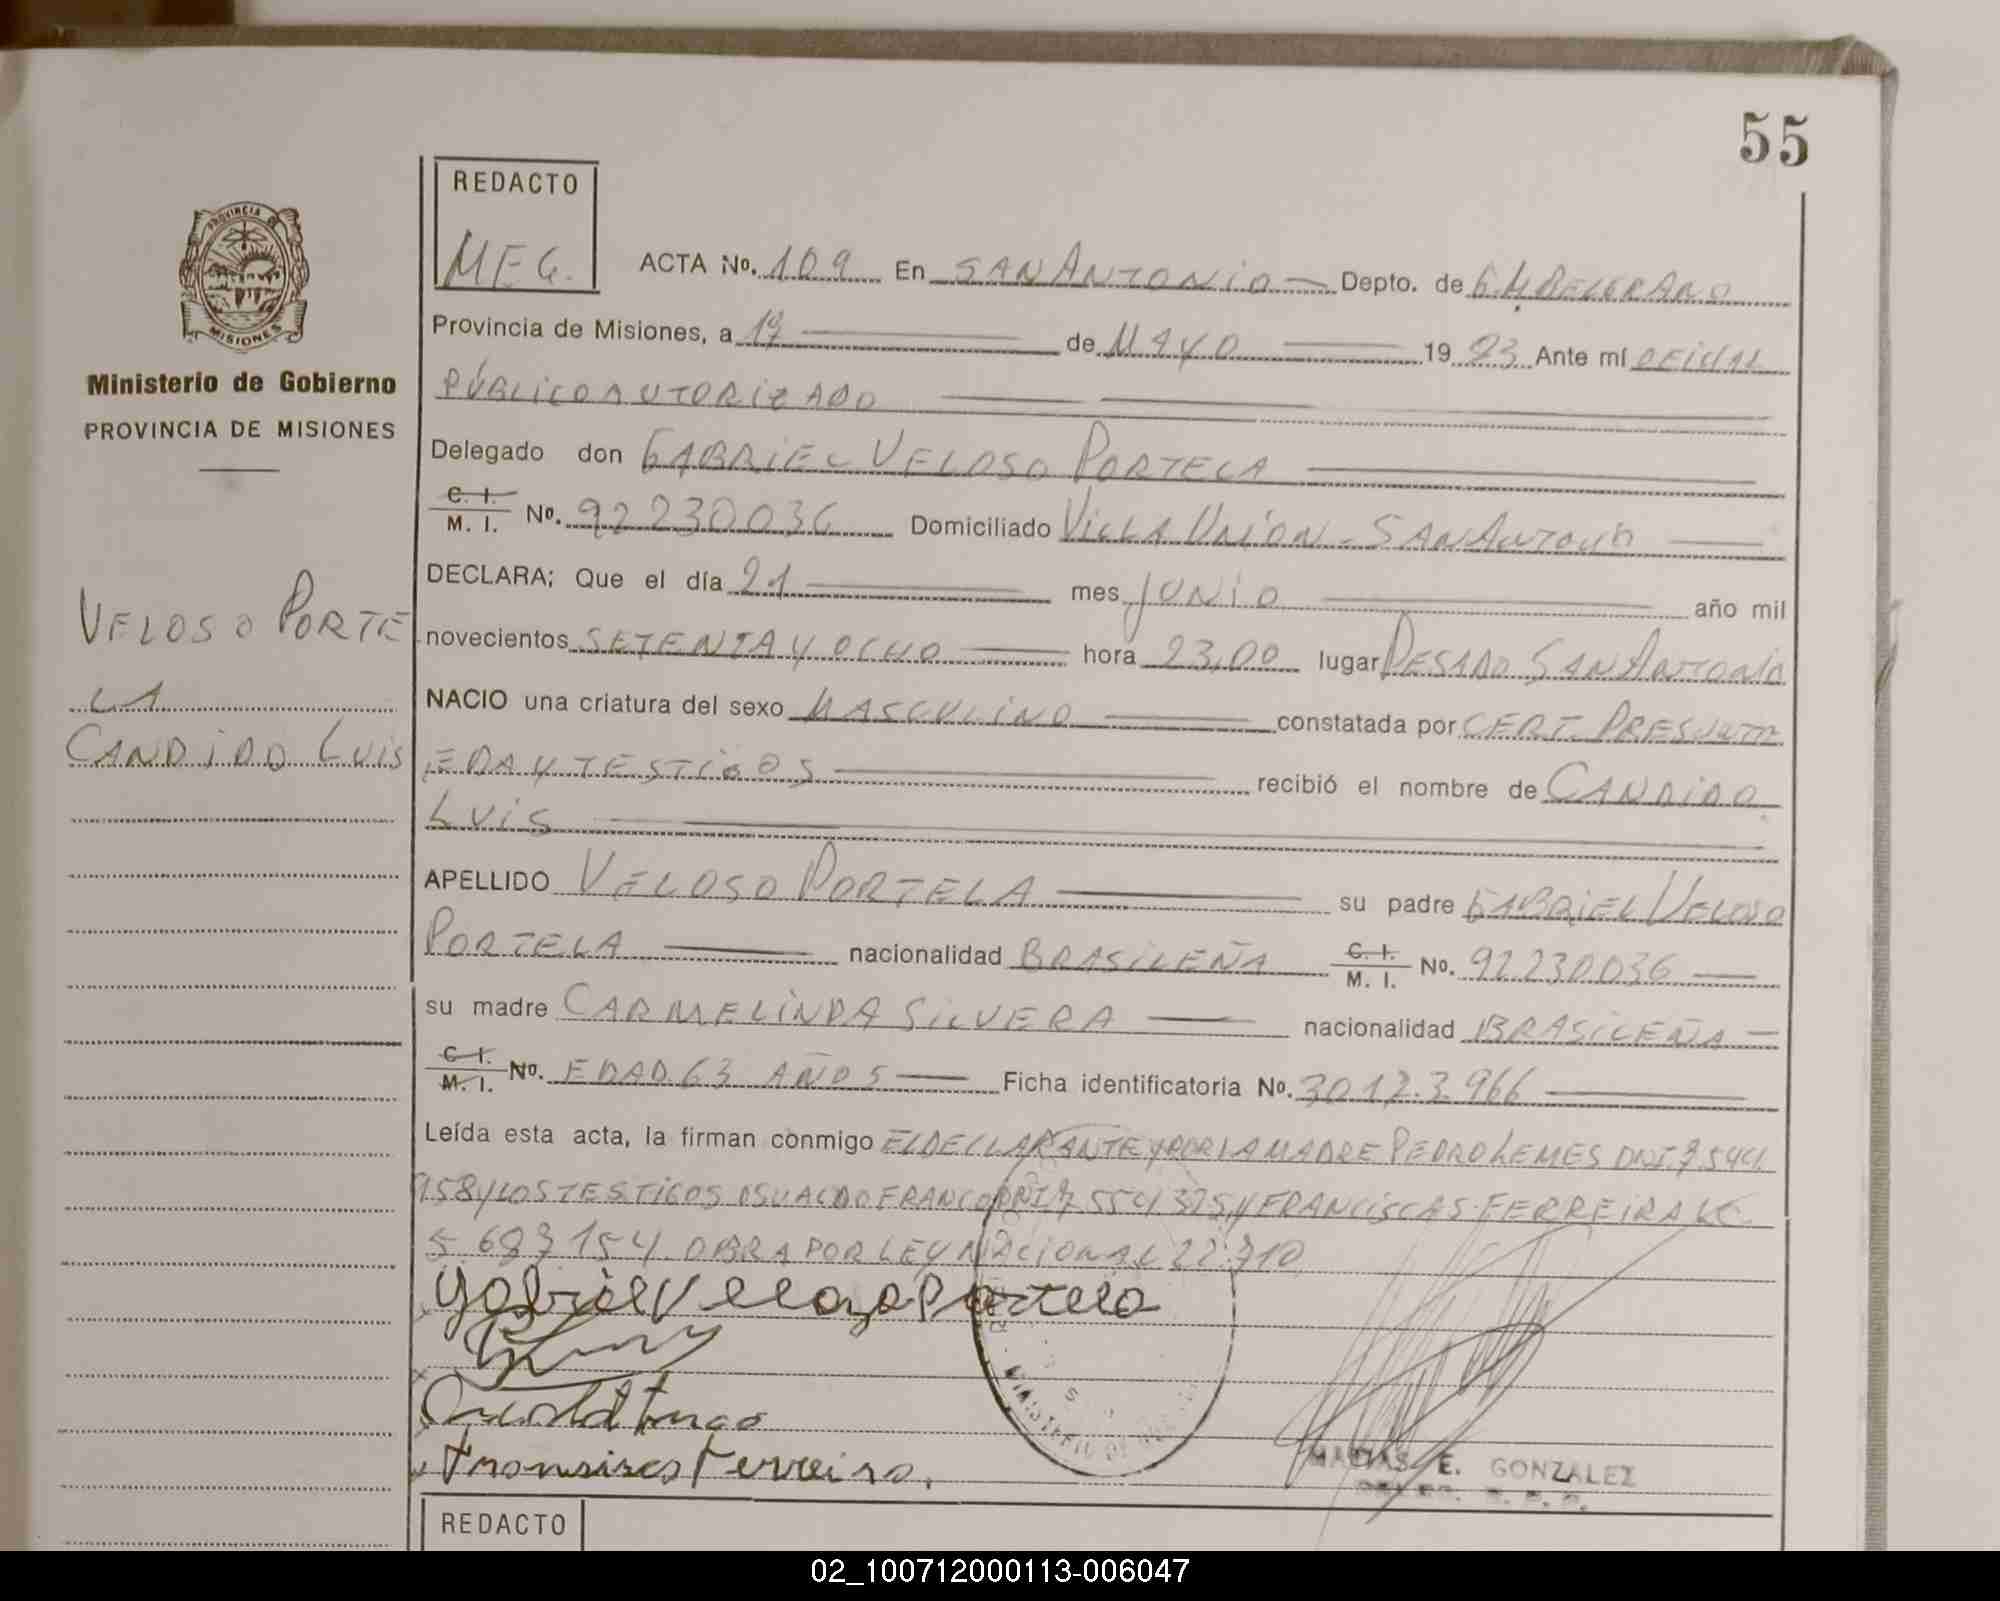 55
REDACTO
MEG.
ACTA Nº. 109 En SAN ANTONIO Depto. de G.M BELGRANO
PROVINCIA DE
MISIONES
Ministerio de Gobierno
PROVINCIA DE MISIONES
Provincia de Misiones, a de MAYO 19 Ante mí OFICIAL
PÚBLICO AUTORIZADO
Delegado don GABRIEL VELOSO PORTELA
C. I. M. I. Nº. 92230036 Domiciliado VILLA UNION - SAN ANTONIO
DECLARA; Que el día 21 mes JUNIO año mil
novecientos SETENTA Y OCHO hora 23,00 lugar SAN ANTONIO
NACIO una criatura del sexo MASCULINO constatada por CERT. PRESUNTA
EDA Y TESTIGOS recibió el nombre de CANDIDO
LUIS
VELOSO PORTE
LA
CANDIDO LUIS
APELLIDO VELOSO PORTELA su padre GABRIEL VELOSO
PORTELA nacionalidad BRASILEÑA C. I. M. I. Nº. 92230036
su madre CARMELINDA SILVERA nacionalidad BRASILEÑA
C. I. M. I. Nº. EDAD 63 AÑOS Ficha identificatoria Nº. 30.123.966
Leída esta acta, la firman conmigo EL DECLARANTE Y POR LA MADRE PEDRO LEMES DNI 7544
958 Y LOS TESTIGOS OSVALDO FRANCO DNI 7 554 375 Y FRANCISCA S. FERREIRA LC
5 687 154 OBRA POR LEY NACIONAL 22.710
Gabriel Velozo Portela
Ferreira.
E. GONZALEZ
REDACTO
02_100712000113-006047